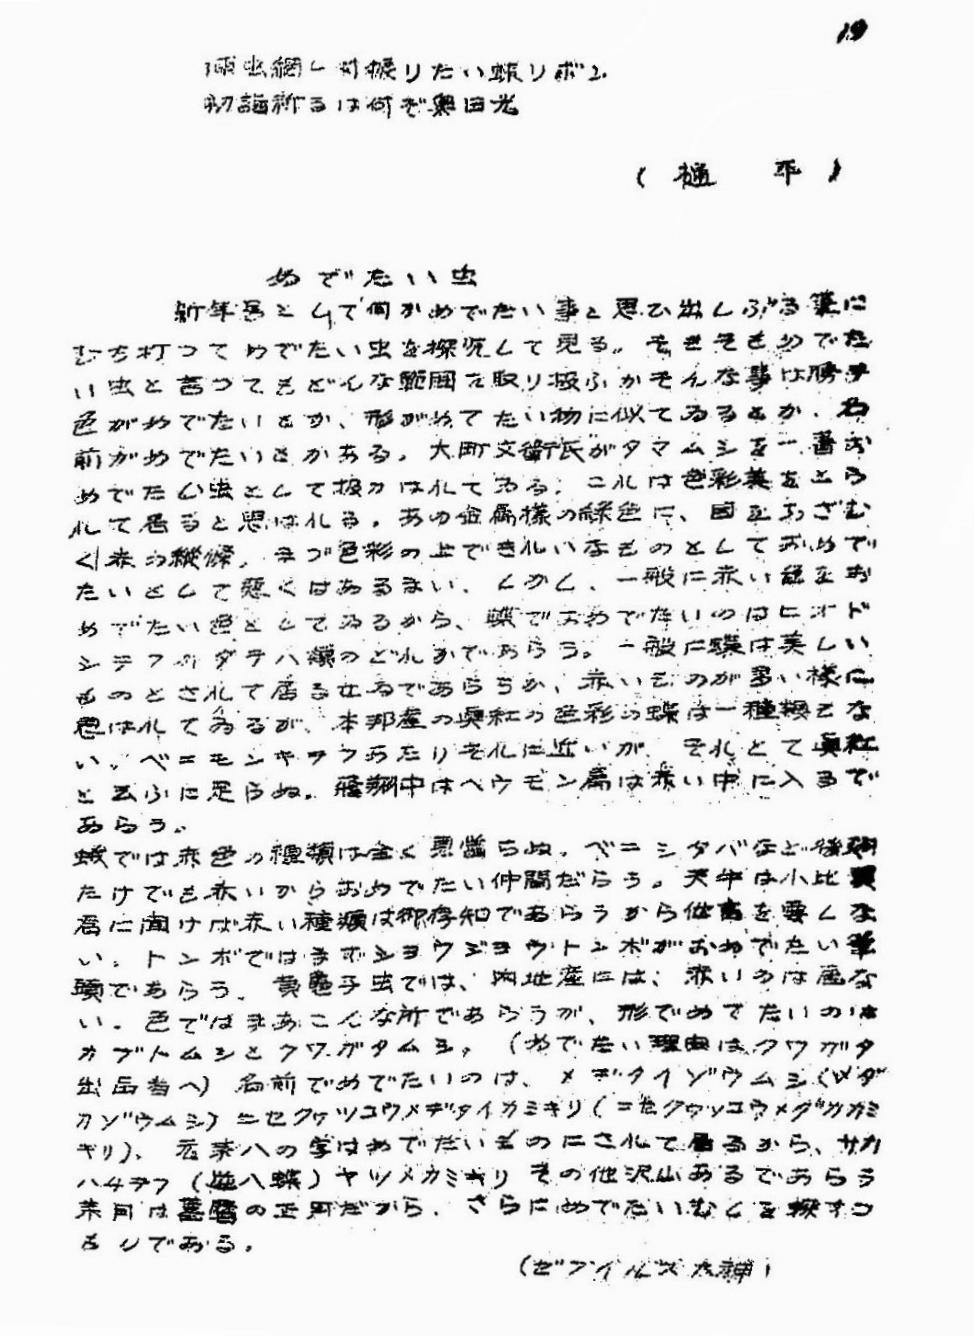 19
網し 振りたい蝶リボン
初詣祈るは何ぞ奥日光
(樋 平)
めでたい虫
新年号として何かめでたい事と思ひ出しぶる筆に
むち打つてめでたい虫を探究して見る。そもそもめでた
い虫と言つてもどんな範囲を取り扱ふかそんな事は勝手
色がめでたいとか、形がめでたい物に似てゐるとか、名
前がめでたいとかある。大町文衛氏がタマムシを一番お
めでたい虫として扱かはれてゐる。これは色彩美をとら
れて居ると思はれる。あの金属様の緑色に、目をあざむ
く赤の縦條。まづ色彩の上できれいなものとしておめで
たいとして悪くはあるまい。しかし、一般に赤い色をお
めでたい色としてゐるから、蝶でおめでたいのはヒオド
シテフかタテハ類のどれかであらう。一般に蝶は美しい
ものとされて居る せゐであらうか、赤いものが多い様に
思はれてゐるが、本邦産の真紅の色彩の蝶は一種類とな
い。ベニモンキテフあたりそれに近いが、それとて真紅
と云ふに足らぬ。飛翔中はヘウモン属は赤い中に入るで
あらう。
蛾では赤色の種類は全く悪蛍らぬ。ベニシタバなど後翅
だけでも赤いからおめでたい仲間だらう。天牛は小比賀
君に聞けば赤い種類は御存知であらうから 要しな
い。トンボではまずシヨウジヨウトンボがおめでたい筆
頭であらう。黄亀子虫では、内地産には、赤いのは居な
い。色ではまあこんな所であらうが、形でめでたいのは
カブトムシとクワガタムシ。(めでたい理由はクワガタ
出品者へ)名前でめでたいのは、メデタイゾウムシ(メダ
カゾウムシ)ニセクワツコウメデタイカミキリ(ニセクワツコウメダカカミ
キリ)、 八の字はめでたいものにされて居るから、サカ
ハチテフ(逆八蝶)ヤツメカミキリ その他沢山あるであらう
来月は旧暦の正月だから、さらにめでたいむしを探すつ
もりである。
(ゼフイルス大神)